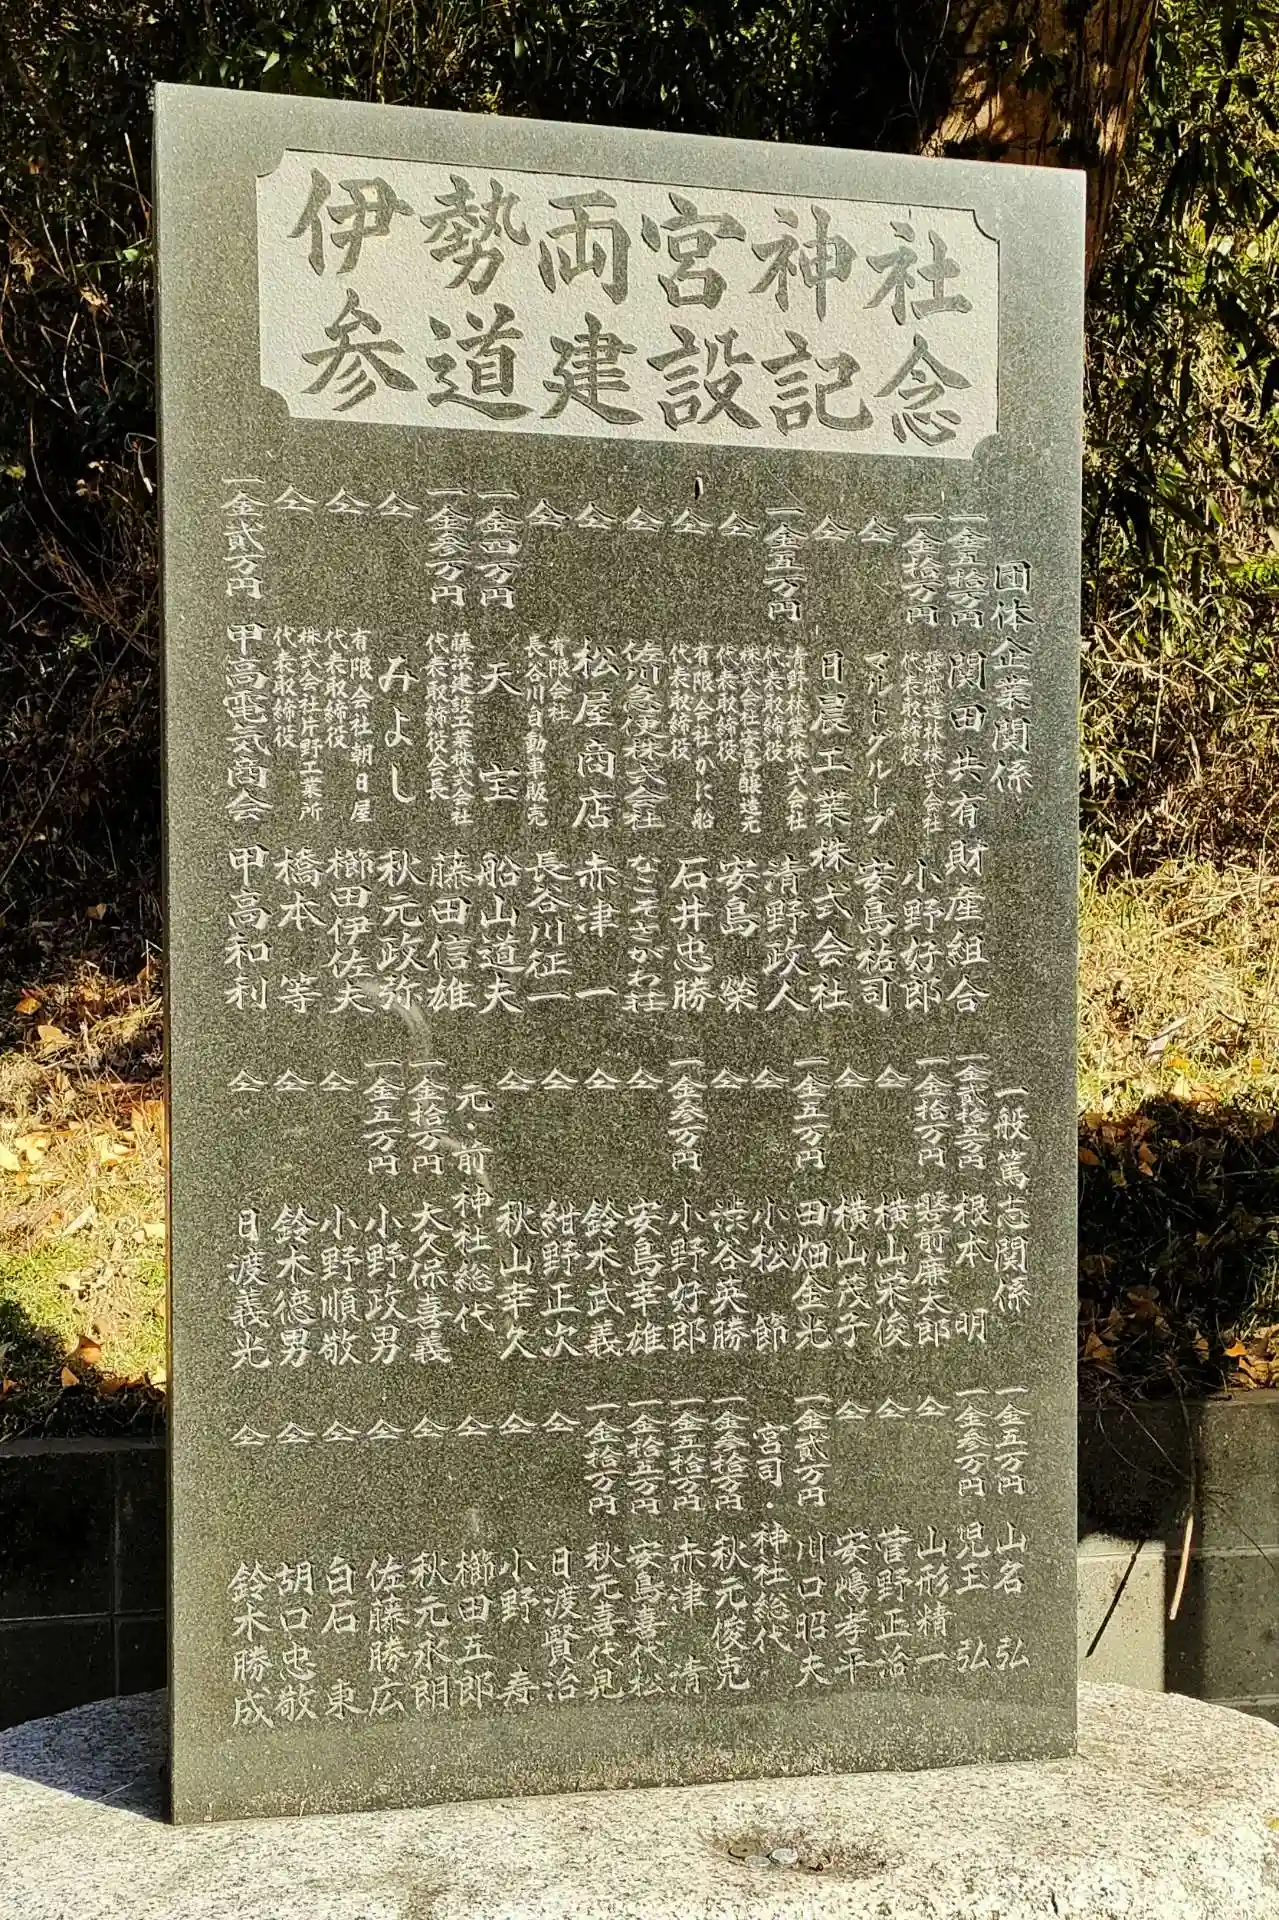 伊勢両宮神社
参道建設記念
団体企業関係
一金五拾万円 関田共有財産組合
一金拾万円 代表取締役 小野好郎
仝 マルトグループ 安島祐司
仝 日晨工業株式会社
一金五万円 青野林業株式会社 代表取締役 清野政人
仝 株式会社安島醸造元 代表取締役 安島 榮
仝 有限会社かに船 代表取締役 石井忠勝
仝 佐川急便株式会社 なこそさがわ荘
仝 松屋商店 赤津 一
仝 有限会社 長谷川自動車販売 長谷川征一
一金四万円 天宝 船山道夫
一金参万円 藤浜建設工業株式会社 代表取締役会長 藤田信雄
仝 みよし 秋元政弥
仝 有限会社朝日屋 代表取締役 櫛田伊佐夫
仝 株式会社片野工業所 代表取締役 橋本 等
一金貳万円 甲高電気商会 甲高和利
一般篤志関係
一金貳拾五万円 根本 明
一金拾万円 磐前廉太郎
仝 横山栄俊
仝 横山茂子
一金五万円 田畑金光
仝 小松 節
仝 渋谷英勝
一金参万円 小野好郎
仝 安島幸雄
仝 鈴木武義
仝 紺野正次
仝 秋山幸久
元・前神社総代
一金拾万円 大久保喜義
一金五万円 小野政男
仝 小野順敬
仝 鈴木德男
仝 日渡義光
一金五万円 山名 弘
一金参万円 児玉 弘
仝 山形精一
仝 菅野正治
仝 安嶋孝平
一金貳万円 川口昭夫
宮司・神社総代
一金参拾万円 秋元俊克
一金五拾万円 赤津 清
一金拾五万円 安島喜代松
一金拾万円 秋元喜代見
仝 日渡賢治
仝 小野 寿
仝 櫛田五郎
仝 秋元永朗
仝 佐藤勝広
仝 白石 東
仝 胡口忠敬
仝 鈴木勝成